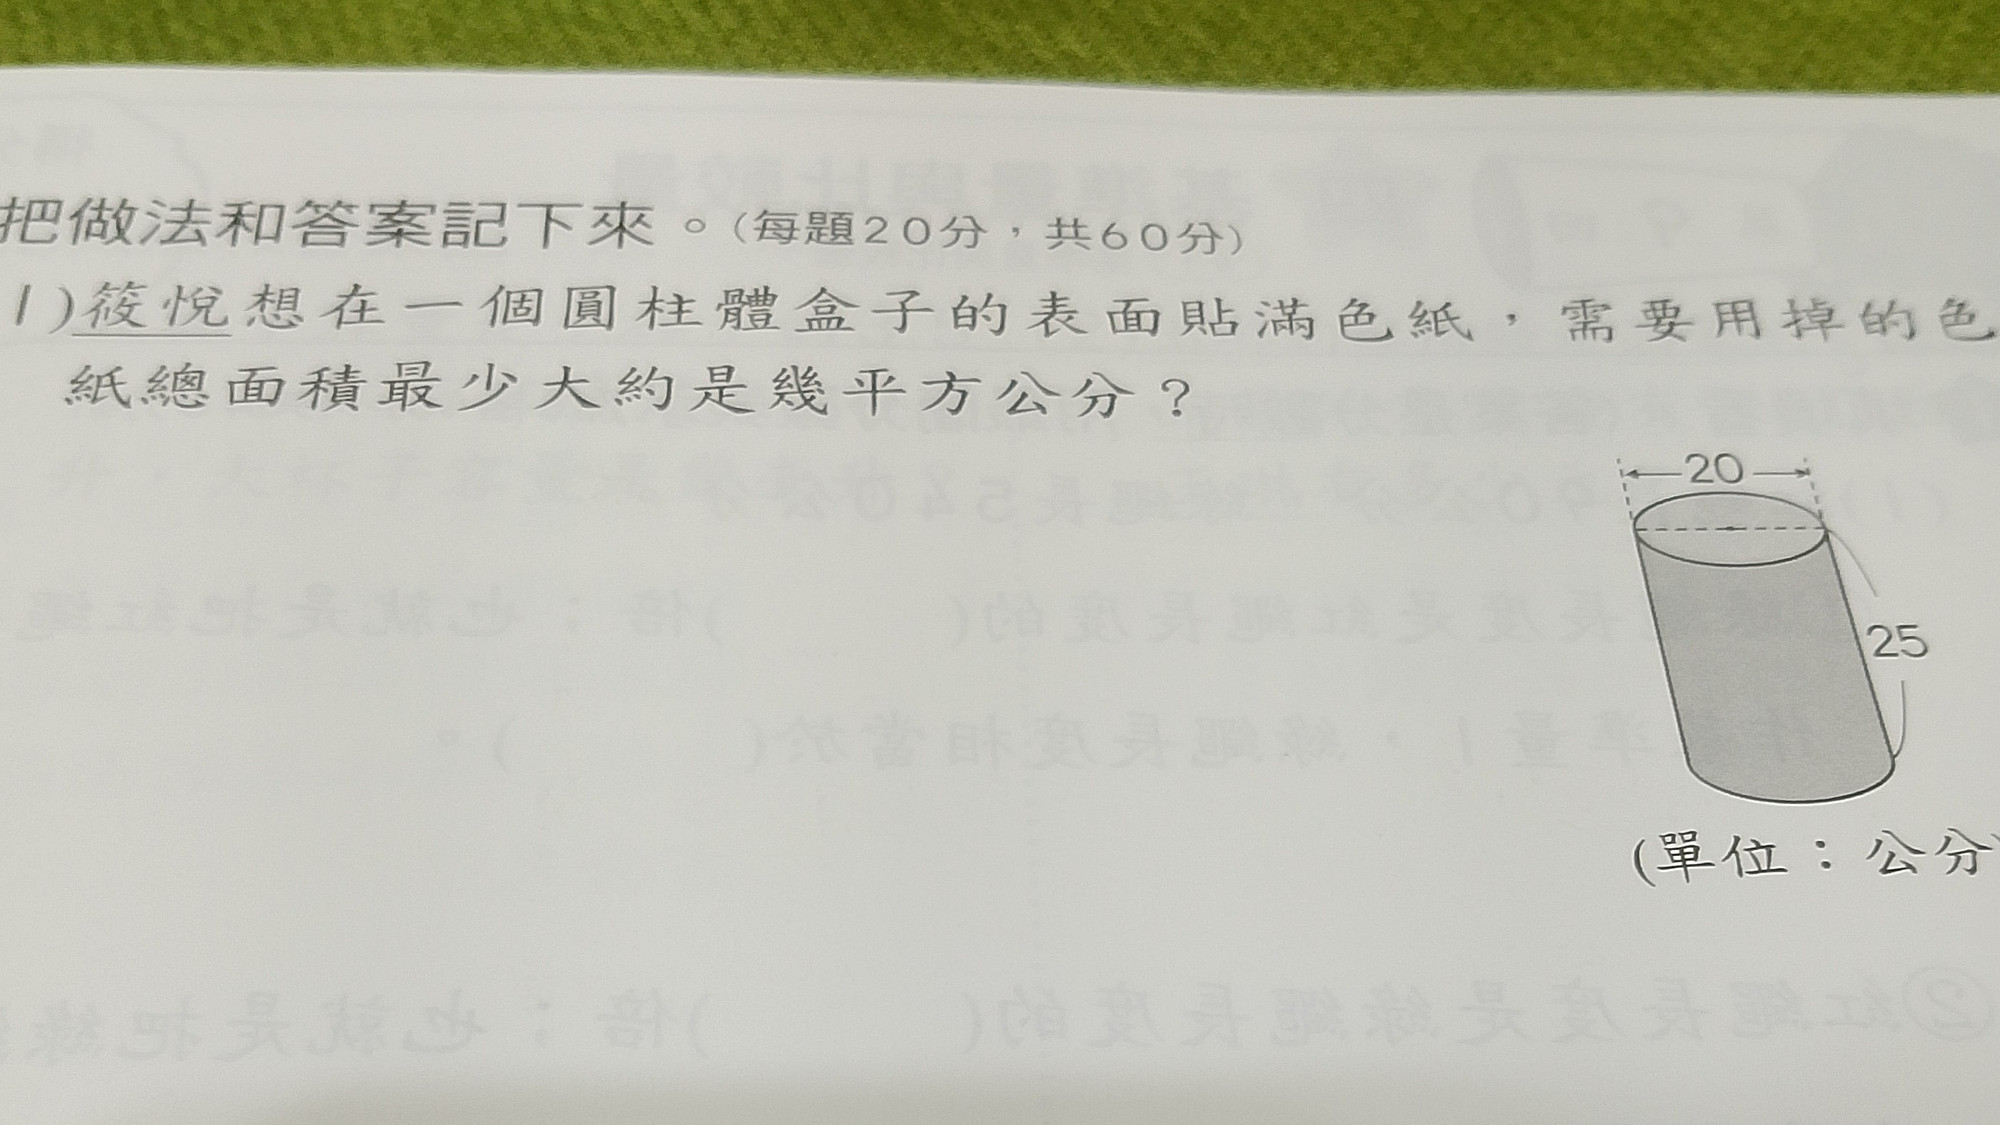 把做法和答案記下來。(每題20分，共60分)
1)筱悅想在一個圓柱體盒子的表面貼滿色紙，需要用掉的色
紙總面積最少大約是幾平方公分？
20
25
(單位：公分)